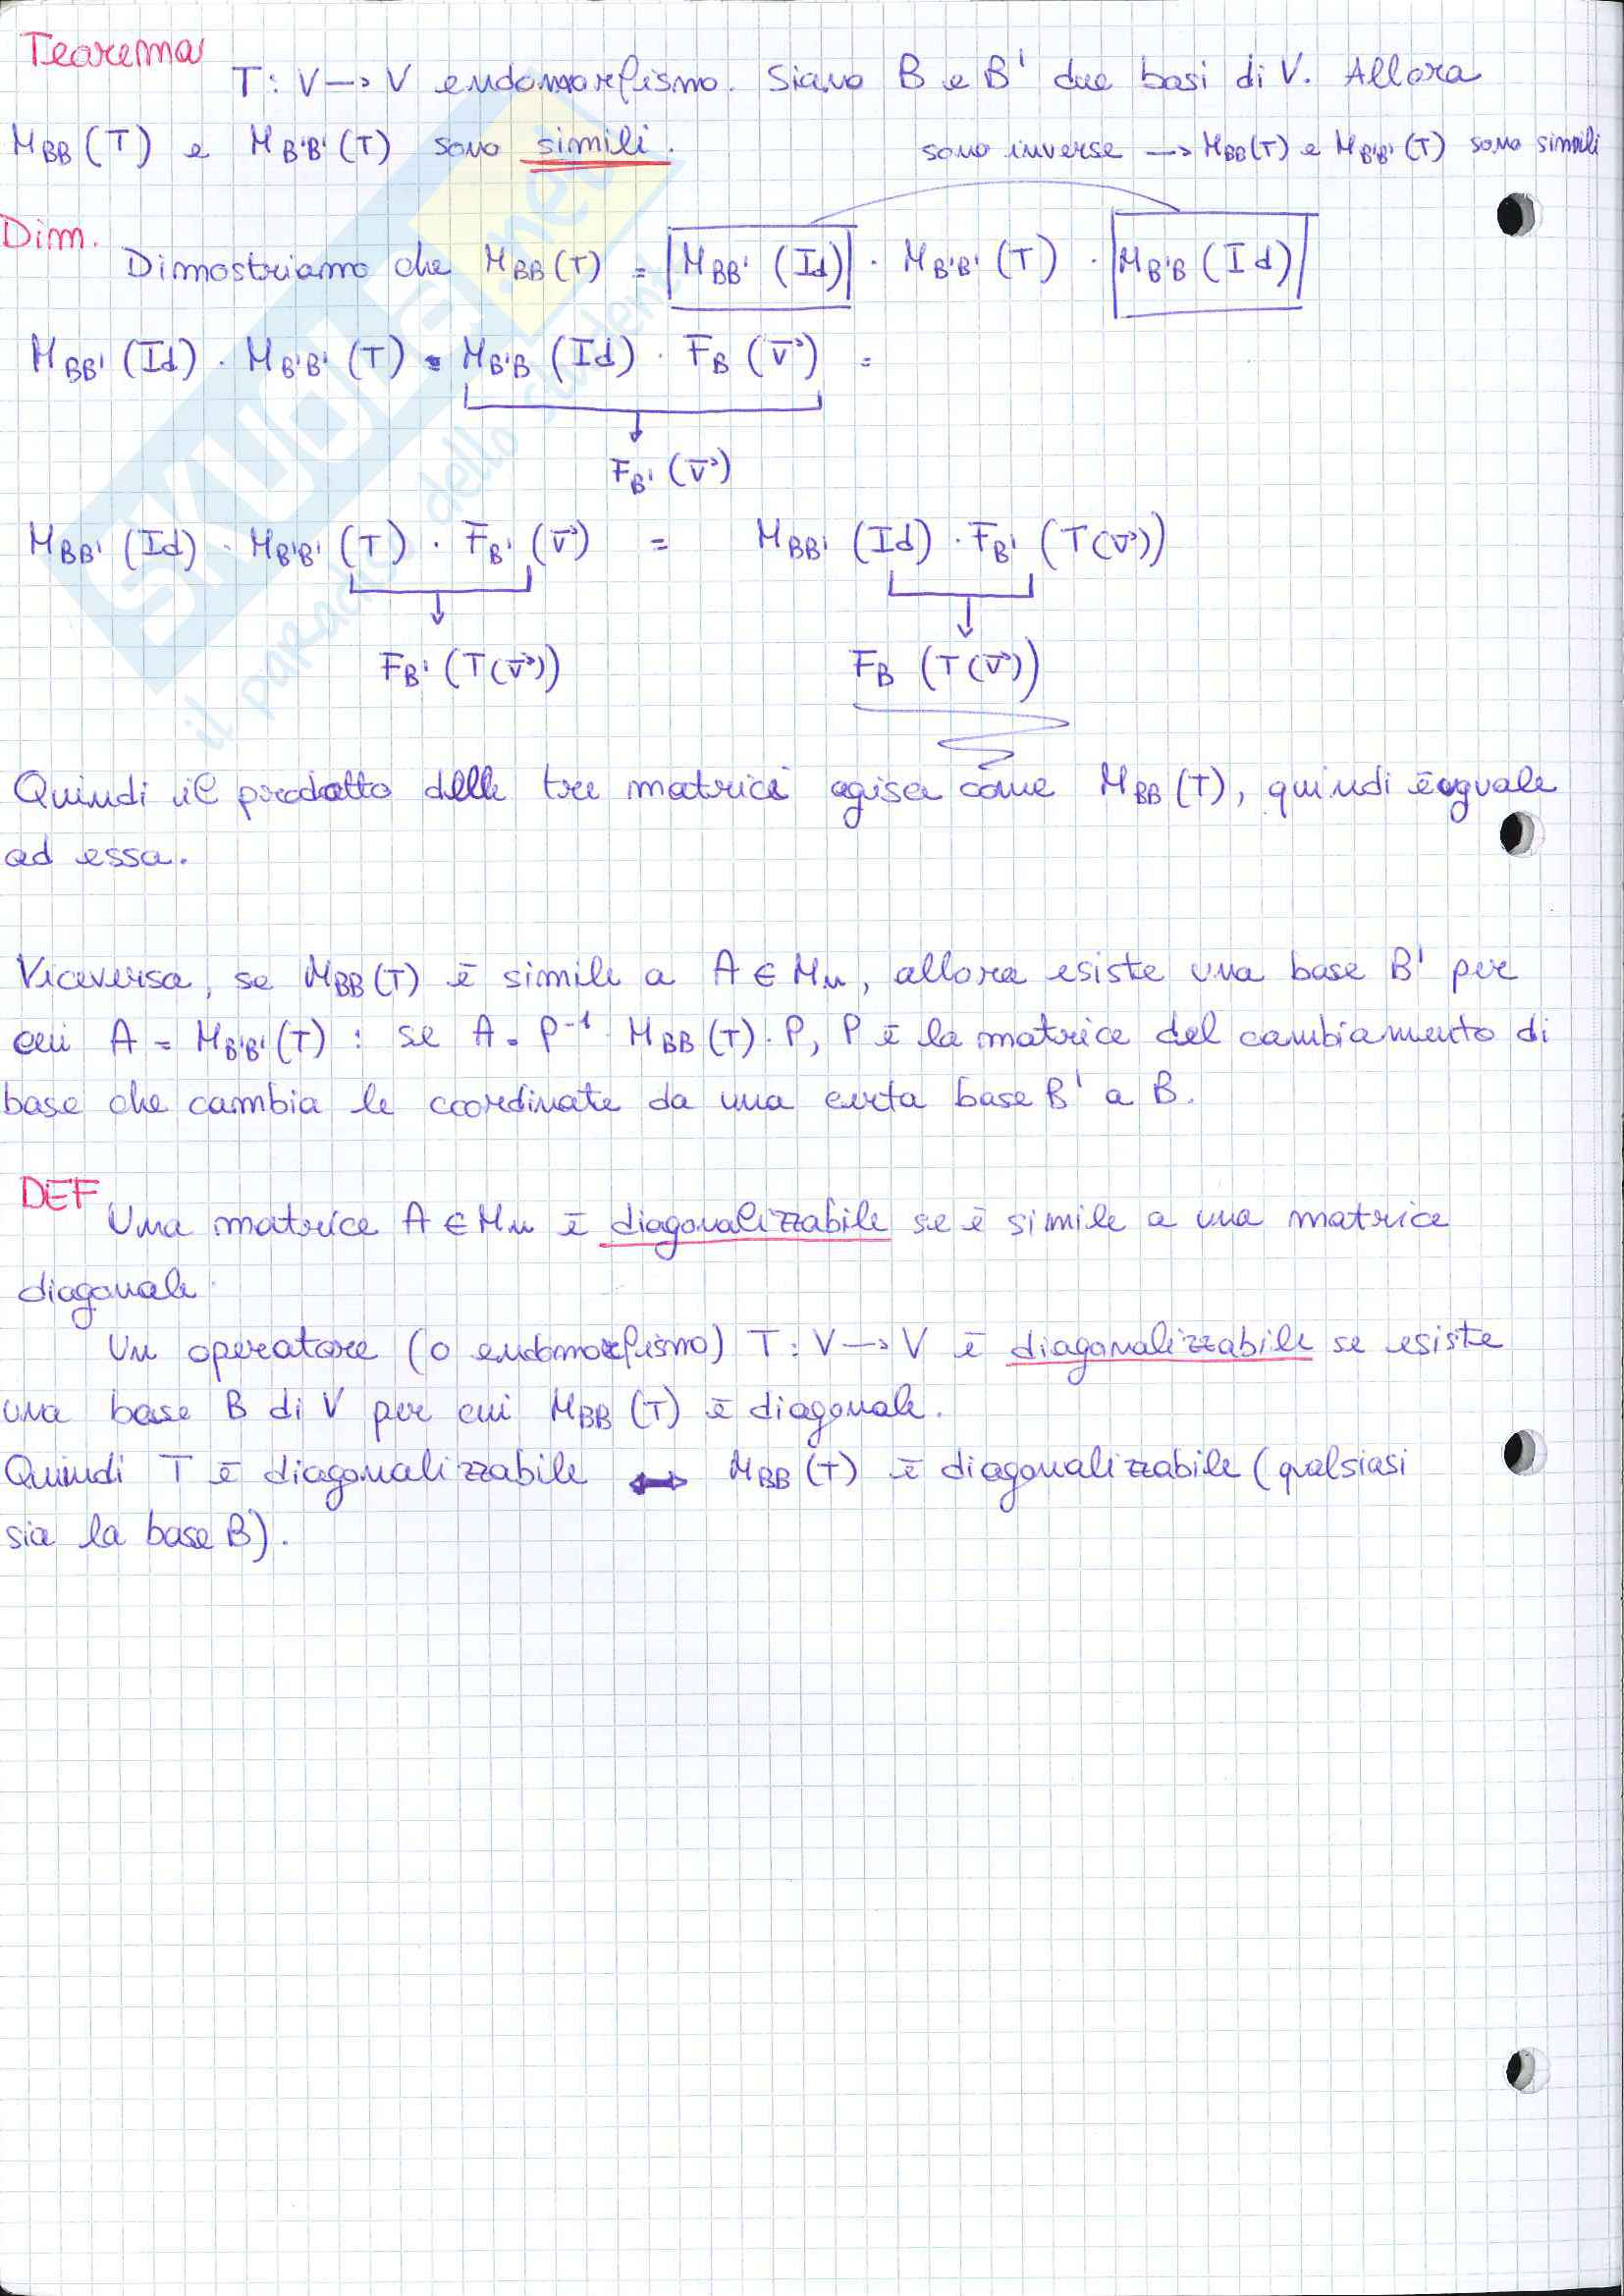 Teorema
T: V → V endomorfismo. Siano B e B' due basi di V. Allora
M_BB (T) e M_B'B' (T) sono simili.
sono inverse → M_BB (T) e M_B'B' (T) sono simili
Dim.
Dimostriamo che M_BB (T) = M_BB' (Id) · M_B'B' (T) · M_B'B (Id)
M_BB' (Id) · M_B'B' (T) · M_B'B (Id) · F_B (v⃗) =
F_B' (v⃗)
M_BB' (Id) · M_B'B' (T) · F_B' (v⃗) = M_BB' (Id) · F_B' (T(v⃗))
F_B' (T(v⃗)) F_B (T(v⃗))
Quindi il prodotto delle tre matrici agisce come M_BB (T), quindi è uguale
ad essa.
Viceversa, se M_BB (T) è simile a A ∈ M_n, allora esiste una base B' per
cui A = M_B'B' (T) : se A = P⁻¹ · M_BB (T) · P, P è la matrice del cambiamento di
base che cambia le coordinate da una certa base B' a B.
DEF
Una matrice A ∈ M_n è diagonalizzabile se è simile a una matrice
diagonale.
Un operatore (o endomorfismo) T: V → V è diagonalizzabile se esiste
una base B di V per cui M_BB (T) è diagonale.
Quindi T è diagonalizzabile ↔ M_BB (T) è diagonalizzabile (qualsiasi
sia la base B).
SKUOLA.net
il paradiso dello studente